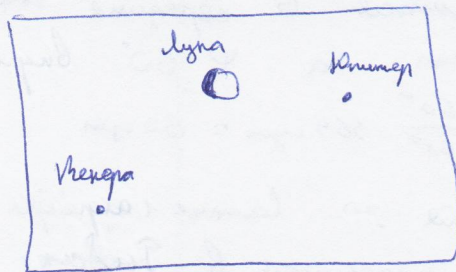 Луна
Юпитер
Венера